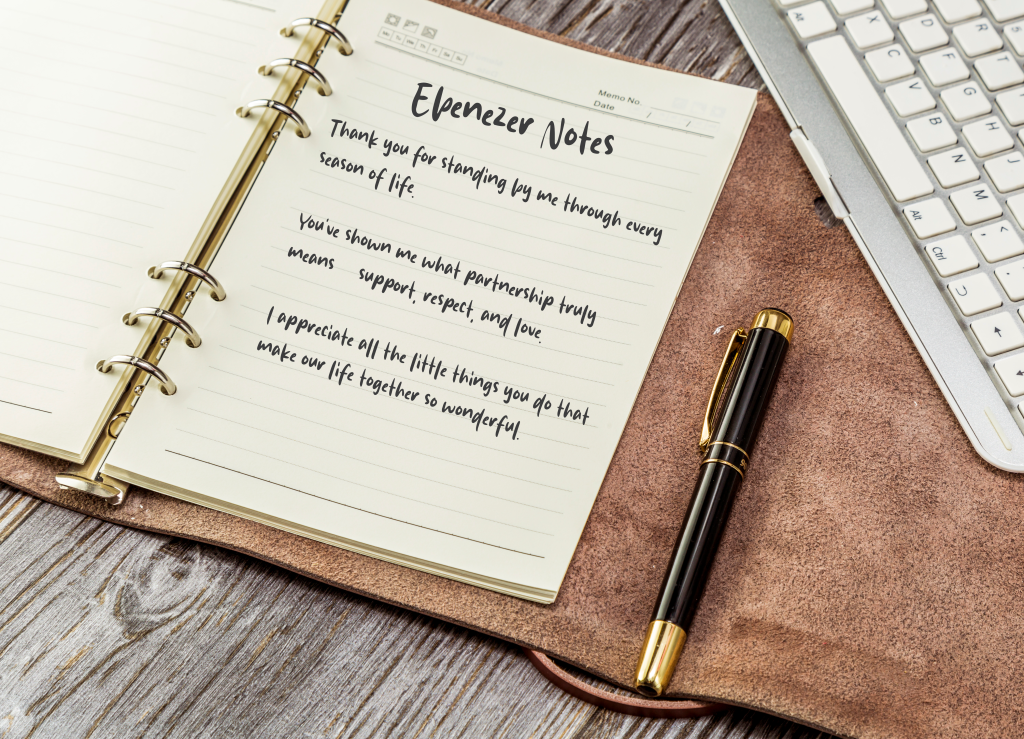 Memo No.
Date / /
Ebenezer Notes
Thank you for standing by me through every
season of life.
You've shown me what partnership truly
means support, respect, and love.
I appreciate all the little things you do that
make our life together so wonderful.
Alt X D R
C F T
V G
B H
N J
Alt M
Ctrl